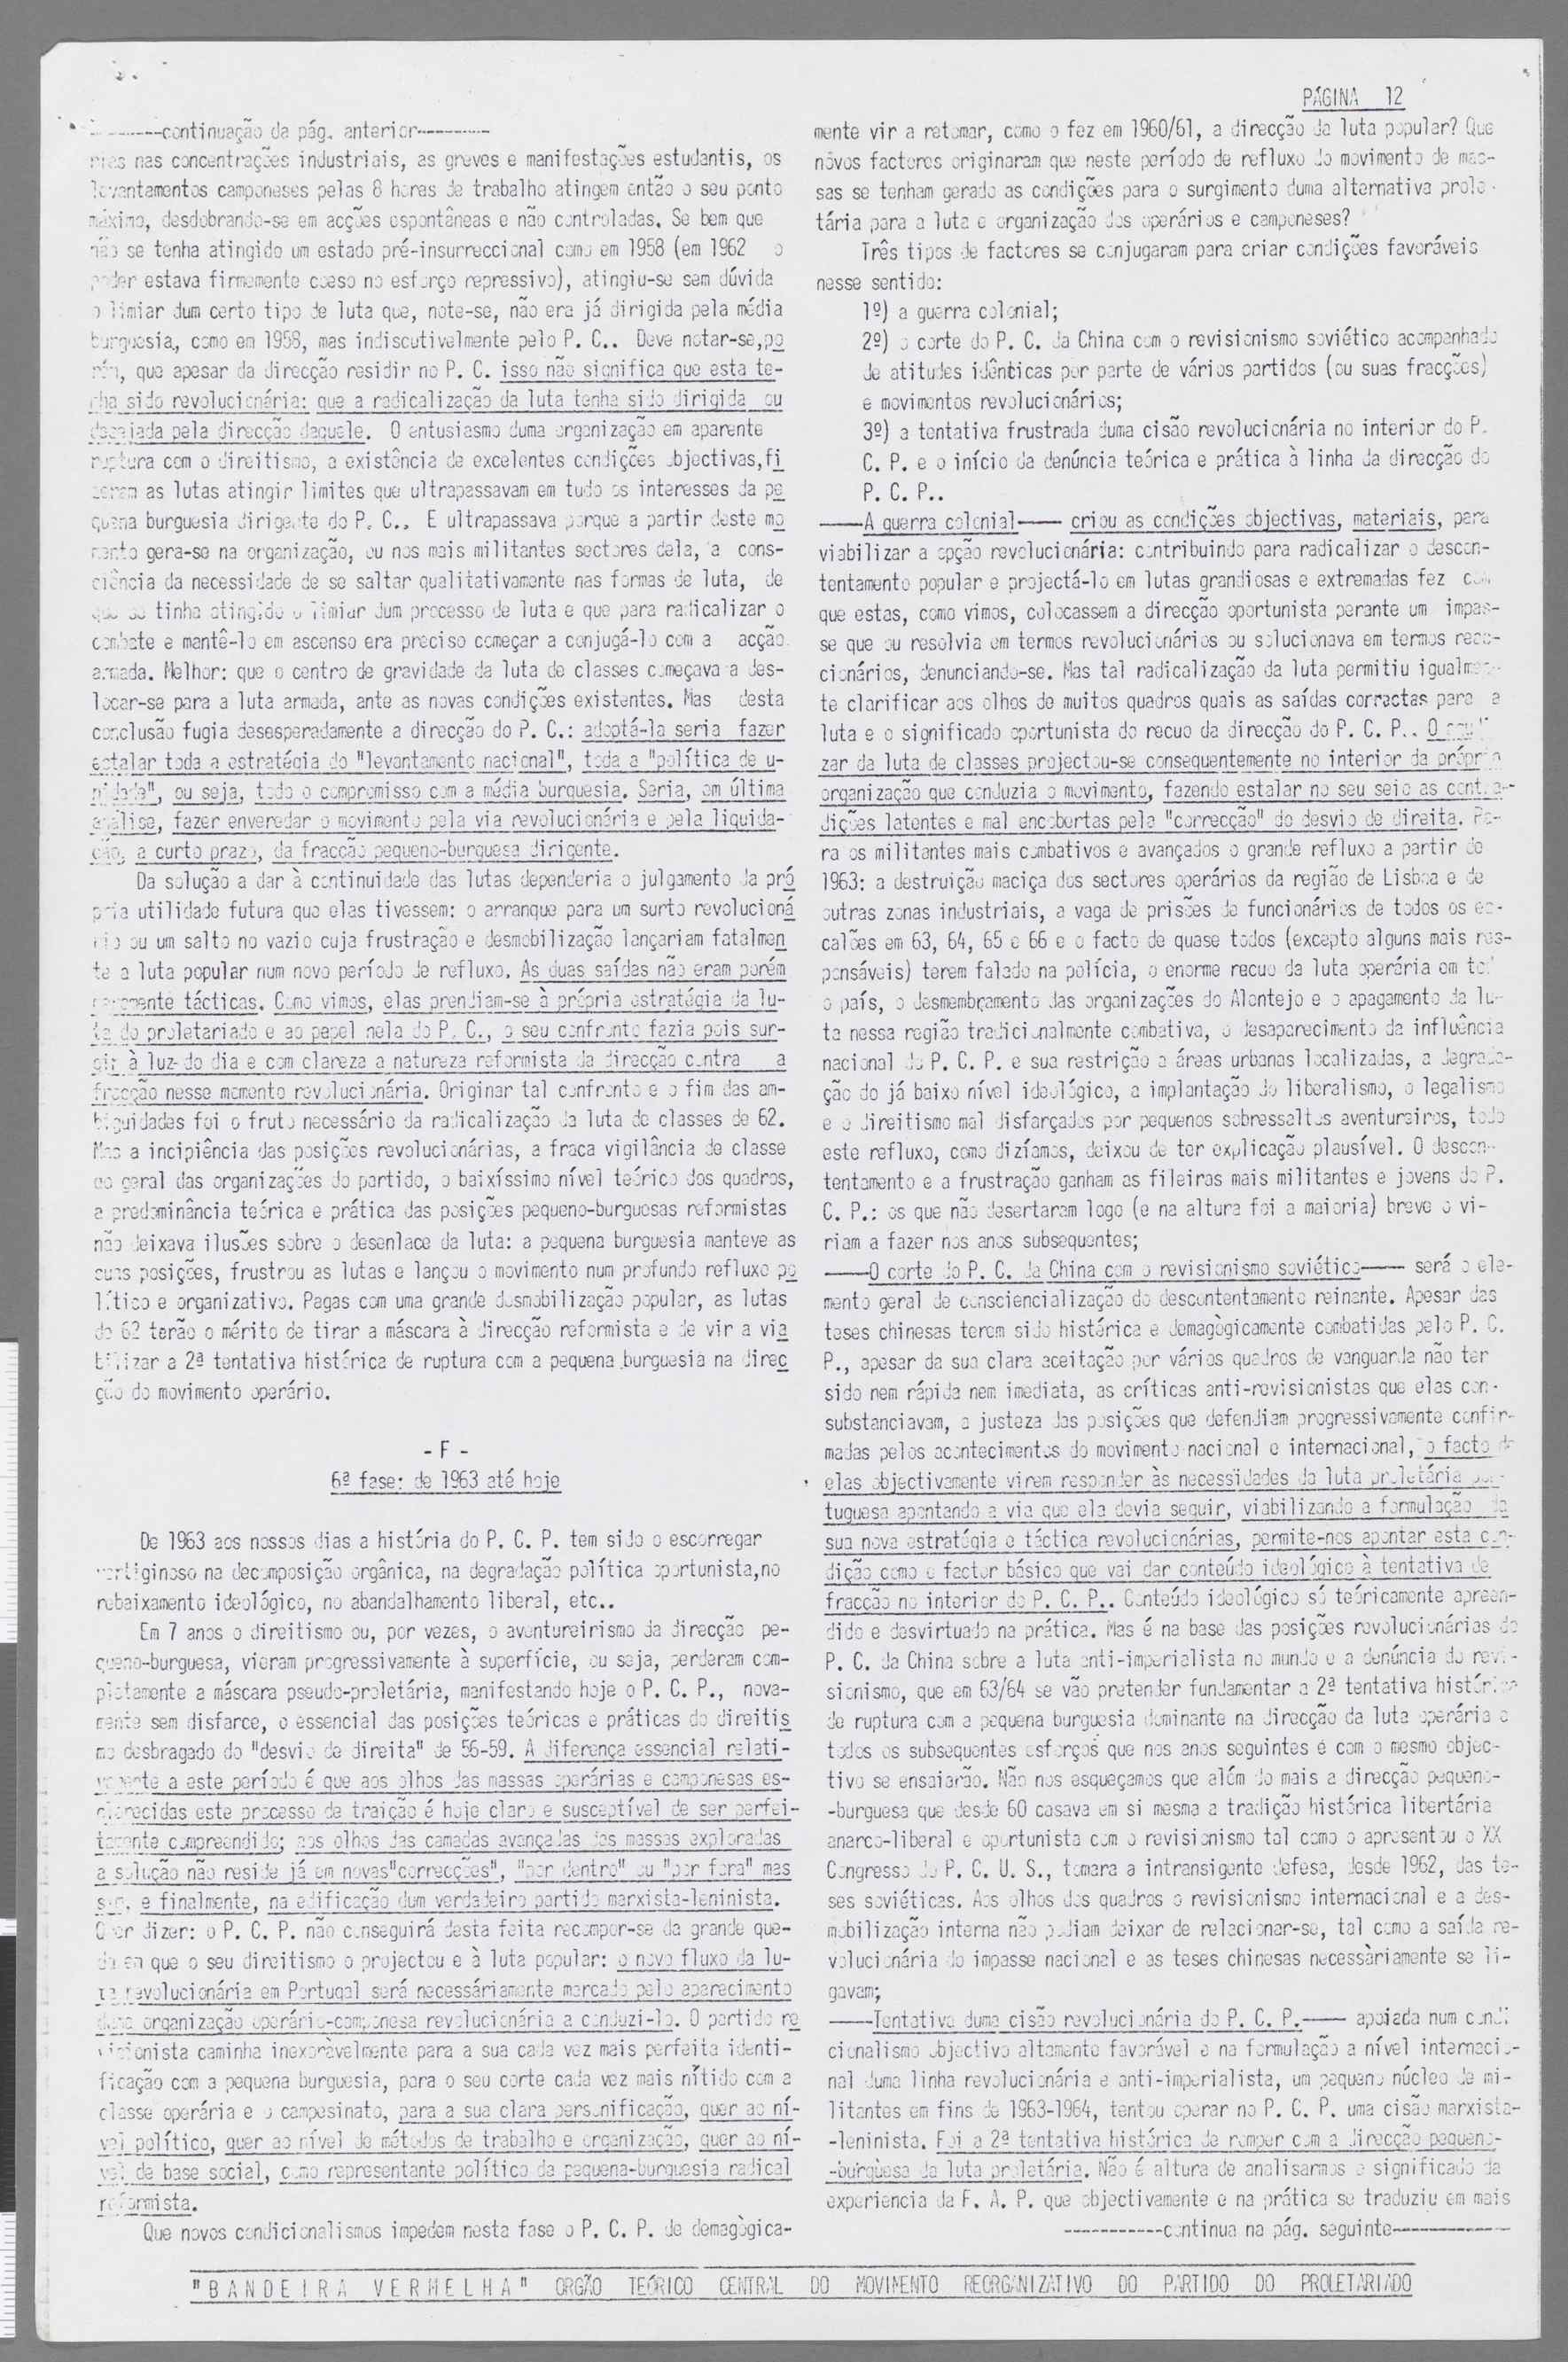 PÁGINA 12
-----------continuação da pág. anterior-----------
nas concentrações industriais, as greves e manifestações estudantis, os
levantamentos camponeses pelas 8 horas de trabalho atingem então o seu ponto
máximo, desdobrando-se em acções espontâneas e não controladas. Se bem que
não se tenha atingido um estado pré-insurreccional como em 1958 (em 1962 o
poder estava firmemente coeso no esforço repressivo), atingiu-se sem dúvida
o limiar dum certo tipo de luta que, note-se, não era já dirigida pela média
burguesia, como em 1958, mas indiscutivelmente pelo P. C.. Deve notar-se,po
rém, que apesar da direcção residir no P. C. isso não significa que esta te-
nha sido revolucionária: que a radicalização da luta tenha sido dirigida ou
desejada pela direcção daquele. O entusiasmo duma organização em aparente
ruptura com o direitismo, a existência de excelentes condições objectivas,fi
zeram as lutas atingir limites que ultrapassavam em tudo os interesses da pe
quena burguesia dirigente do P. C.. E ultrapassava porque a partir deste mo
mento gera-se na organização, ou nos mais militantes sectores dela, a cons-
ciência da necessidade de se saltar qualitativamente nas formas de luta, de
que se tinha atingido o limiar dum processo de luta e que para radicalizar o
combate e mantê-lo em ascenso era preciso começar a conjugá-lo com a acção
armada. Melhor: que o centro de gravidade da luta de classes começava a des-
locar-se para a luta armada, ante as novas condições existentes. Mas desta
conclusão fugia desesperadamente a direcção do P. C.: adoptá-la seria fazer
estalar toda a estratégia do "levantamento nacional", toda a "política de u-
nidade", ou seja, todo o compromisso com a média burguesia. Seria, em última
análise, fazer enveredar o movimento pela via revolucionária e pela liquida-
ção, a curto prazo, da fracção pequeno-burguesa dirigente.
Da solução a dar à continuidade das lutas dependeria o julgamento da pró
pria utilidade futura que elas tivessem: o arranque para um surto revolucioná
rio ou um salto no vazio cuja frustração e desmobilização lançariam fatalmen
te a luta popular num novo período de refluxo. As duas saídas não eram porém
meramente tácticas. Como vimos, elas prendiam-se à própria estratégia da lu-
ta do proletariado e ao papel nela do P. C., o seu confronto fazia pois sur-
gir à luz-do dia e com clareza a natureza reformista da direcção contra a
fracção nesse momento revolucionária. Originar tal confronto e o fim das am-
biguidades foi o fruto necessário da radicalização da luta de classes de 62.
Mas a incipiência das posições revolucionárias, a fraca vigilância de classe
no geral das organizações do partido, o baixíssimo nível teórico dos quadros,
a predominância teórica e prática das posições pequeno-burguesas reformistas
não deixava ilusões sobre o desenlace da luta: a pequena burguesia manteve as
suas posições, frustrou as lutas e lançou o movimento num profundo refluxo po
lítico e organizativo. Pagas com uma grande desmobilização popular, as lutas
de 62 terão o mérito de tirar a máscara à direcção reformista e de vir a via
bilizar a 2ª tentativa histórica de ruptura com a pequena burguesia na direc
ção do movimento operário.
- F -
6ª fase: de 1963 até hoje
De 1963 aos nossos dias a história do P. C. P. tem sido o escorregar
vertiginoso na decomposição orgânica, na degradação política oportunista,no
rebaixamento ideológico, no abandalhamento liberal, etc..
Em 7 anos o direitismo ou, por vezes, o aventureirismo da direcção pe-
queno-burguesa, vieram progressivamente à superfície, ou seja, perderam com-
pletamente a máscara pseudo-proletária, manifestando hoje o P. C. P., nova-
mente sem disfarce, o essencial das posições teóricas e práticas do direitis
mo desbragado do "desvio de direita" de 56-59. A diferença essencial relati-
vamente a este período é que aos olhos das massas operárias e camponesas es-
clarecidas este processo de traição é hoje claro e susceptível de ser perfei-
tamente compreendido; aos olhos das camadas avançadas das massas exploradas
a solução não reside já em novas"correcções", "por dentro" ou "por fora" mas
sim, e finalmente, na edificação dum verdadeiro partido marxista-leninista.
Quer dizer: o P. C. P. não conseguirá desta feita recompor-se da grande que-
da em que o seu direitismo o projectou e à luta popular: o novo fluxo da lu-
ta revolucionária em Portugal será necessáriamente marcado pelo aparecimento
duma organização operário-camponesa revolucionária a conduzi-lo. O partido re
visionista caminha inexoràvelmente para a sua cada vez mais perfeita identi-
ficação com a pequena burguesia, para o seu corte cada vez mais nítido com a
classe operária e o campesinato, para a sua clara personificação, quer ao ní-
vel político, quer ao nível de métodos de trabalho e organização, quer ao ní-
vel de base social, como representante político da pequena-burguesia radical
reformista.
Que novos condicionalismos impedem nesta fase o P. C. P. de demagògica-
mente vir a retomar, como o fez em 1960/61, a direcção da luta popular? Que
nóvos factores originaram que neste período de refluxo do movimento de mas-
sas se tenham gerado as condições para o surgimento duma alternativa prole-
tária para a luta e organização dos operários e camponeses?
Três tipos de factores se conjugaram para criar condições favoráveis
nesse sentido:
1º) a guerra colonial;
2º) o corte do P. C. da China com o revisionismo soviético acompanhado
de atitudes idênticas por parte de vários partidos (ou suas fracções)
e movimentos revolucionários;
3º) a tentativa frustrada duma cisão revolucionária no interior do P.
C. P. e o início da denúncia teórica e prática à linha da direcção do
P. C. P..
——A guerra colonial—— criou as condições objectivas, materiais, para
viabilizar a opção revolucionária: contribuindo para radicalizar o descon-
tentamento popular e projectá-lo em lutas grandiosas e extremadas fez com
que estas, como vimos, colocassem a direcção oportunista perante um impas-
se que ou resolvia em termos revolucionários ou solucionava em termos reac-
cionários, denunciando-se. Mas tal radicalização da luta permitiu igualmen-
te clarificar aos olhos de muitos quadros quais as saídas correctas para a
luta e o significado oportunista do recuo da direcção do P. C. P.. O
zar da luta de classes projectou-se consequentemente no interior da própria
organização que conduzia o movimento, fazendo estalar no seu seio as contra-
dições latentes e mal encobertas pela "correcção" do desvio de direita. Pa-
ra os militantes mais combativos e avançados o grande refluxo a partir de
1963: a destruição maciça dos sectores operários da região de Lisboa e de
outras zonas industriais, a vaga de prisões de funcionários de todos os es-
calões em 63, 64, 65 e 66 e o facto de quase todos (excepto alguns mais res-
ponsáveis) terem falado na polícia, o enorme recuo da luta operária em todo
o país, o desmembramento das organizações do Alentejo e o apagamento da lu-
ta nessa região tradicionalmente combativa, o desaparecimento da influência
nacional do P. C. P. e sua restrição a áreas urbanas localizadas, a degrada-
ção do já baixo nível ideológico, a implantação do liberalismo, o legalismo
e o direitismo mal disfarçados por pequenos sobressaltos aventureiros, todo
este refluxo, como dizíamos, deixou de ter explicação plausível. O descon-
tentamento e a frustração ganham as fileiras mais militantes e jovens do P.
C. P.: os que não desertaram logo (e na altura foi a maioria) breve o vi-
riam a fazer nos anos subsequentes;
——O corte do P. C. da China com o revisionismo soviético—— será o ele-
mento geral de consciencialização do descontentamento reinante. Apesar das
teses chinesas terem sido histérica e demagògicamente combatidas pelo P. C.
P., apesar da sua clara aceitação por vários quadros de vanguarda não ter
sido nem rápida nem imediata, as críticas anti-revisionistas que elas con-
substanciavam, a justeza das posições que defendiam progressivamente confir-
madas pelos acontecimentos do movimento nacional e internacional, o facto de
elas objectivamente virem responder às necessidades da luta proletária por-
tuguesa apontando a via que ela devia seguir, viabilizando a formulação da
sua nova estratégia e táctica revolucionárias, permite-nos apontar esta con-
dição como o factor básico que vai dar conteúdo ideológico à tentativa de
fracção no interior do P. C. P.. Conteúdo ideológico só teòricamente apreen-
dido e desvirtuado na prática. Mas é na base das posições revolucionárias do
P. C. da China sobre a luta anti-imperialista no mundo e a denúncia do revi-
sionismo, que em 63/64 se vão pretender fundamentar a 2ª tentativa histórica
de ruptura com a pequena burguesia dominante na direcção da luta operária e
todos os subsequentes esforços que nos anos seguintes e com o mesmo objec-
tivo se ensaiarão. Não nos esqueçamos que além do mais a direcção pequeno-
-burguesa que desde 60 casava em si mesma a tradição histórica libertária
anarco-liberal e oportunista com o revisionismo tal como o apresentou o XX
Congresso do P. C. U. S., tomara a intransigente defesa, desde 1962, das te-
ses soviéticas. Aos olhos dos quadros o revisionismo internacional e a des-
mobilização interna não podiam deixar de relacionar-se, tal como a saída re-
volucionária do impasse nacional e as teses chinesas necessàriamente se li-
gavam;
——Tentativa duma cisão revolucionária do P. C. P.—— apoiada num condi
cionalismo objectivo altamente favorável e na formulação a nível internacio-
nal duma linha revolucionária e anti-imperialista, um pequeno núcleo de mi-
litantes em fins de 1963-1964, tentou operar no P. C. P. uma cisão marxista-
-leninista. Foi a 2ª tentativa histórica de romper com a direcção pequeno-
-burguesa da luta proletária. Não é altura de analisarmos o significado da
experiencia da F. A. P. que objectivamente e na prática se traduziu em mais
-----------continua na pág. seguinte-----------
"BANDEIRA VERMELHA" ORGÃO TEÓRICO CENTRAL DO MOVIMENTO REORGANIZATIVO DO PARTIDO DO PROLETARIADO